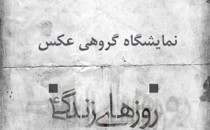 نمایشگاه گروهی عکس
روزهای زندگی